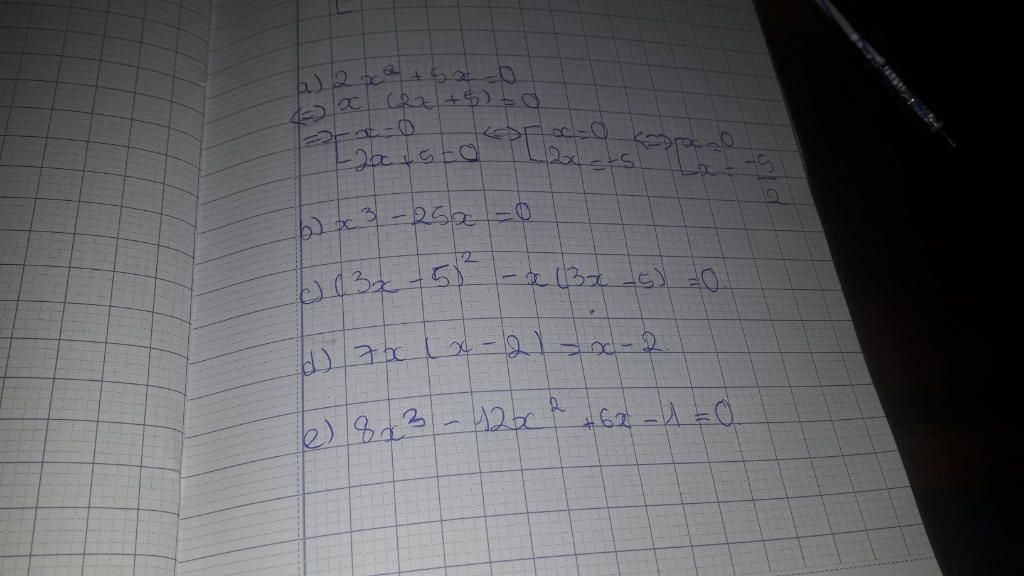 a) 2x² + 5x = 0
<=> x (2x + 5) = 0
=> [ x = 0 <=> [ x = 0 <=> [ x = 0
2x + 5 = 0 2x = -5 x = -5/2
b) x³ - 25x = 0
c) (3x - 5)² - x (3x - 5) = 0
d) 7x (x - 2) = x - 2
e) 8x³ - 12x² + 6x - 1 = 0